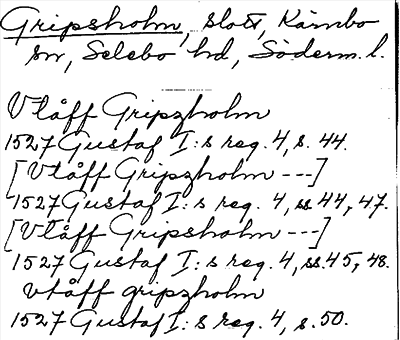 Gripsholm, slott, Kärnbo
sn, Selebo hd, Söderm. l.
Vtåff Gripzholm
1527 Gustaf I:s reg. 4, s. 44.
[Vtåff Gripzholm ---]
1527 Gustaf I:s reg. 4, ss 44, 47.
[Vtåff Gripsholm ---]
1527 Gustaf I:s reg. 4, ss. 45, 48.
vtåff gripzholm
1527 Gustaf I:s reg. 4, s. 50.